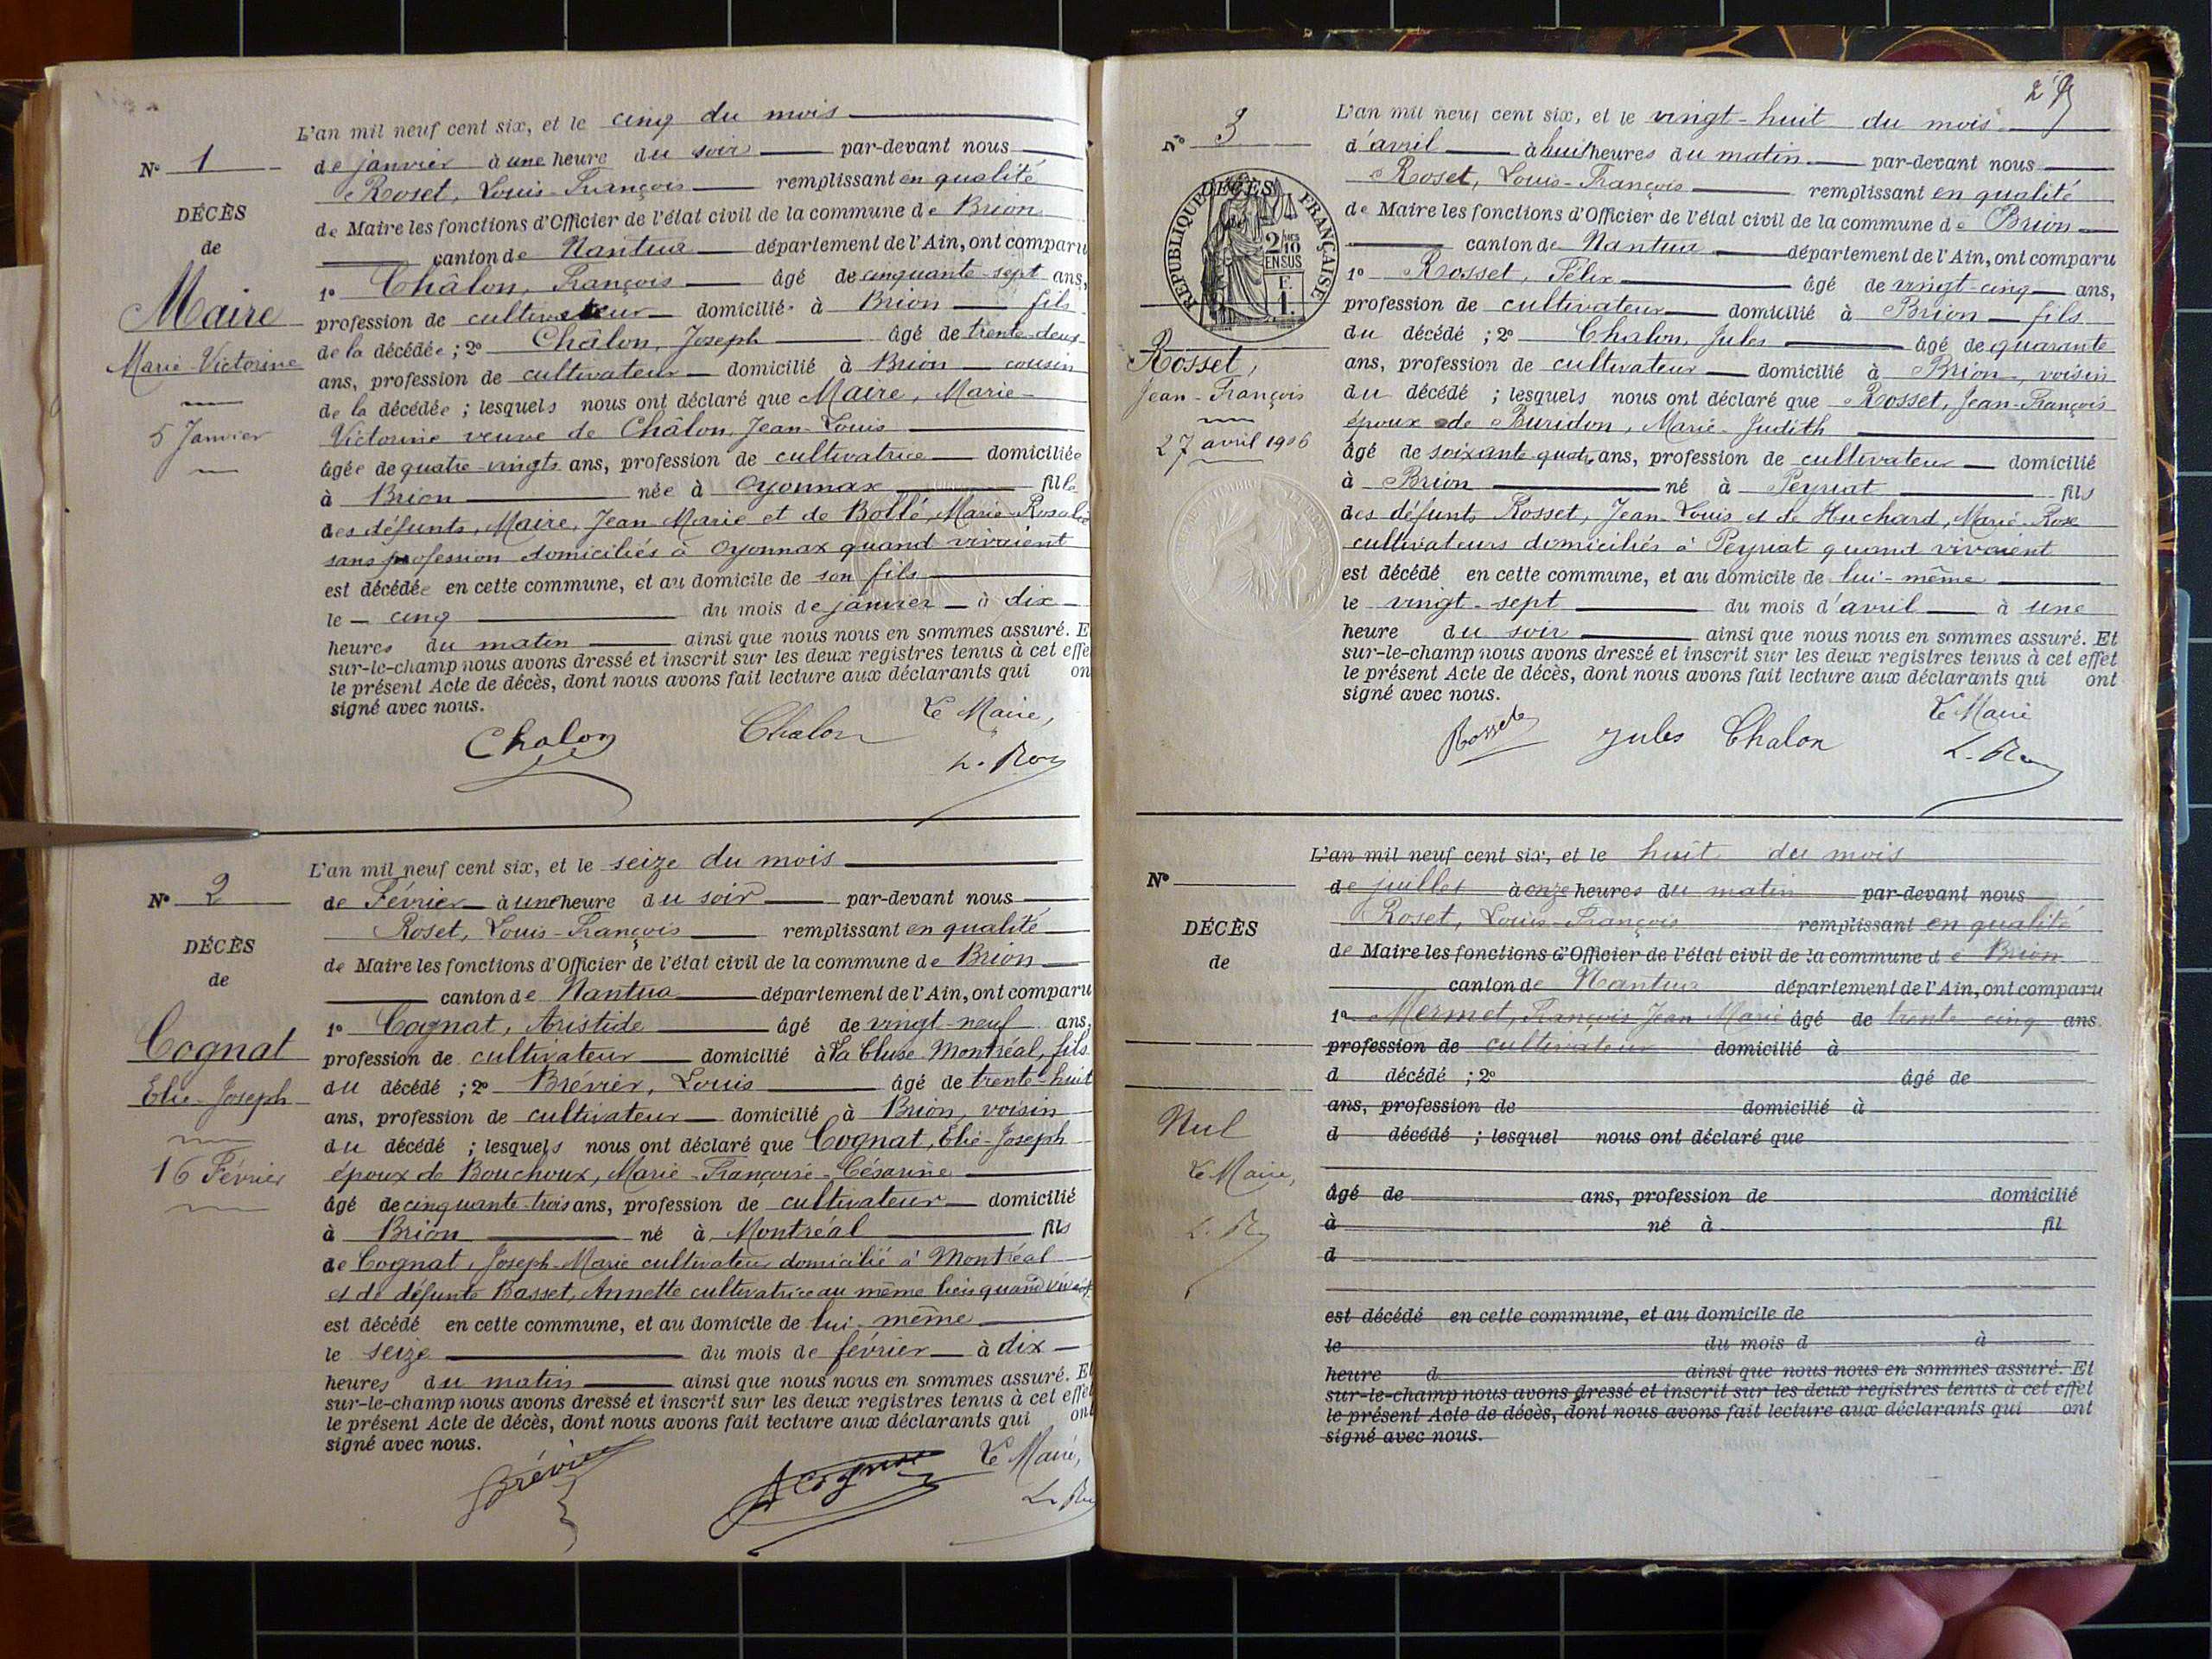 L'an mil neuf cent six, et le cinq du mois
N° 1
de janvier à une heure du soir par-devant nous
Roset, Louis-François remplissant en qualité
DÉCÈS
de Maire les fonctions d'Officier de l'état civil de la commune de Brion
de
canton de Nantua département de l'Ain, ont comparu
1° Châlon, François âgé de cinquante-sept ans,
Maire
profession de cultivateur domicilié à Brion fils
de la décédée ; 2° Châlon, Joseph âgé de trente-deux
Marie-Victorine
ans, profession de cultivateur domicilié à Brion cousin
de la décédée ; lesquels nous ont déclaré que Maire, Marie-
5 Janvier
Victorine veuve de Châlon, Jean-Louis
âgée de quatre-vingts ans, profession de cultivatrice domiciliée
à Brion née à Oyonnax fille
des défunts, Maire, Jean-Marie et de Bollé, Marie-Rosalie
sans profession domiciliés à Oyonnax quand vivaient
est décédée en cette commune, et au domicile de son fils
le cinq du mois de janvier à dix
heures du matin ainsi que nous nous en sommes assuré. E
sur-le-champ nous avons dressé et inscrit sur les deux registres tenus à cet effe
le présent Acte de décès, dont nous avons fait lecture aux déclarants qui on
signé avec nous.
Le Maire,
Chalon Chalon
L. Ros
L'an mil neuf cent six, et le seize du mois
N° 2
de Février à une heure du soir par-devant nous
Roset, Louis-François remplissant en qualité
DÉCÈS
de Maire les fonctions d'Officier de l'état civil de la commune de Brion
de
canton de Nantua département de l'Ain, ont comparu
1° Cognat, Aristide âgé de vingt-neuf ans,
Cognat
profession de cultivateur domicilié à La Cluse-Montréal, fils
du décédé ; 2° Brévier, Louis âgé de trente-huit
Elie-Joseph
ans, profession de cultivateur domicilié à Brion, voisin
du décédé ; lesquels nous ont déclaré que Cognat, Elie-Joseph
16 Février
époux de Bouchoux, Marie-Françoise-Césarine
âgé de cinquante-trois ans, profession de cultivateur domicilié
à Brion né à Montréal fils
de Cognat, Joseph-Marie cultivateur domicilié à Montréal
et de défunte Basset, Annette cultivatrice au même lieu quand vivait
est décédé en cette commune, et au domicile de lui-même
le seize du mois de février à dix
heures du matin ainsi que nous nous en sommes assuré. Et
sur-le-champ nous avons dressé et inscrit sur les deux registres tenus à cet effet
le présent Acte de décès, dont nous avons fait lecture aux déclarants qui ont
signé avec nous.
Le Maire,
Brévier A Cognat
L. Ro
L'an mil neuf cent six, et le vingt-huit du mois
N° 3
d'avril à huit heures du matin par-devant nous
Roset, Louis-François remplissant en qualité
DÉCÈS
RÉPUBLIQUE FRANÇAISE
2 MES 10 EN SUS
F. 1.
de Maire les fonctions d'Officier de l'état civil de la commune de Brion
canton de Nantua département de l'Ain, ont comparu
1° Rosset, Félix âgé de vingt-cinq ans,
profession de cultivateur domicilié à Brion fils
du décédé ; 2° Chalon, Jules âgé de quarante
Rosset,
ans, profession de cultivateur domicilié à Brion, voisin
Jean-François
du décédé ; lesquels nous ont déclaré que Rosset, Jean-François
époux de Buridon, Marie-Judith
27 avril 1906
âgé de soixante quatre ans, profession de cultivateur domicilié
à Brion né à Peyriat fils
des défunts Rosset, Jean-Louis et de Huchard, Marie-Rose
cultivateurs domiciliés à Peyriat quand vivaient
est décédé en cette commune, et au domicile de lui-même
le vingt-sept du mois d'avril à une
heure du soir ainsi que nous nous en sommes assuré. Et
sur-le-champ nous avons dressé et inscrit sur les deux registres tenus à cet effet
le présent Acte de décès, dont nous avons fait lecture aux déclarants qui ont
signé avec nous.
Le Maire
Rosset Jules Chalon
L. Ro
L'an mil neuf cent six, et le huit du mois
N°
de juillet à onze heures du matin par-devant nous
Roset, Louis-François remplissant en qualité
DÉCÈS
de Maire les fonctions d'Officier de l'état civil de la commune de Brion
de
canton de Nantua département de l'Ain, ont comparu
1° Mermet, François Jean Marie âgé de trente cinq ans
profession de cultivateur domicilié à
d décédé ; 2° âgé de
ans, profession de domicilié à
Nul
d décédé ; lesquel nous ont déclaré que
Le Maire,
âgé de ans, profession de domicilié
L. R
à né à fil
d
est décédé en cette commune, et au domicile de
le du mois d à
heure d ainsi que nous nous en sommes assuré. Et
sur-le-champ nous avons dressé et inscrit sur les deux registres tenus à cet effet
le présent Acte de décès, dont nous avons fait lecture aux déclarants qui ont
signé avec nous.